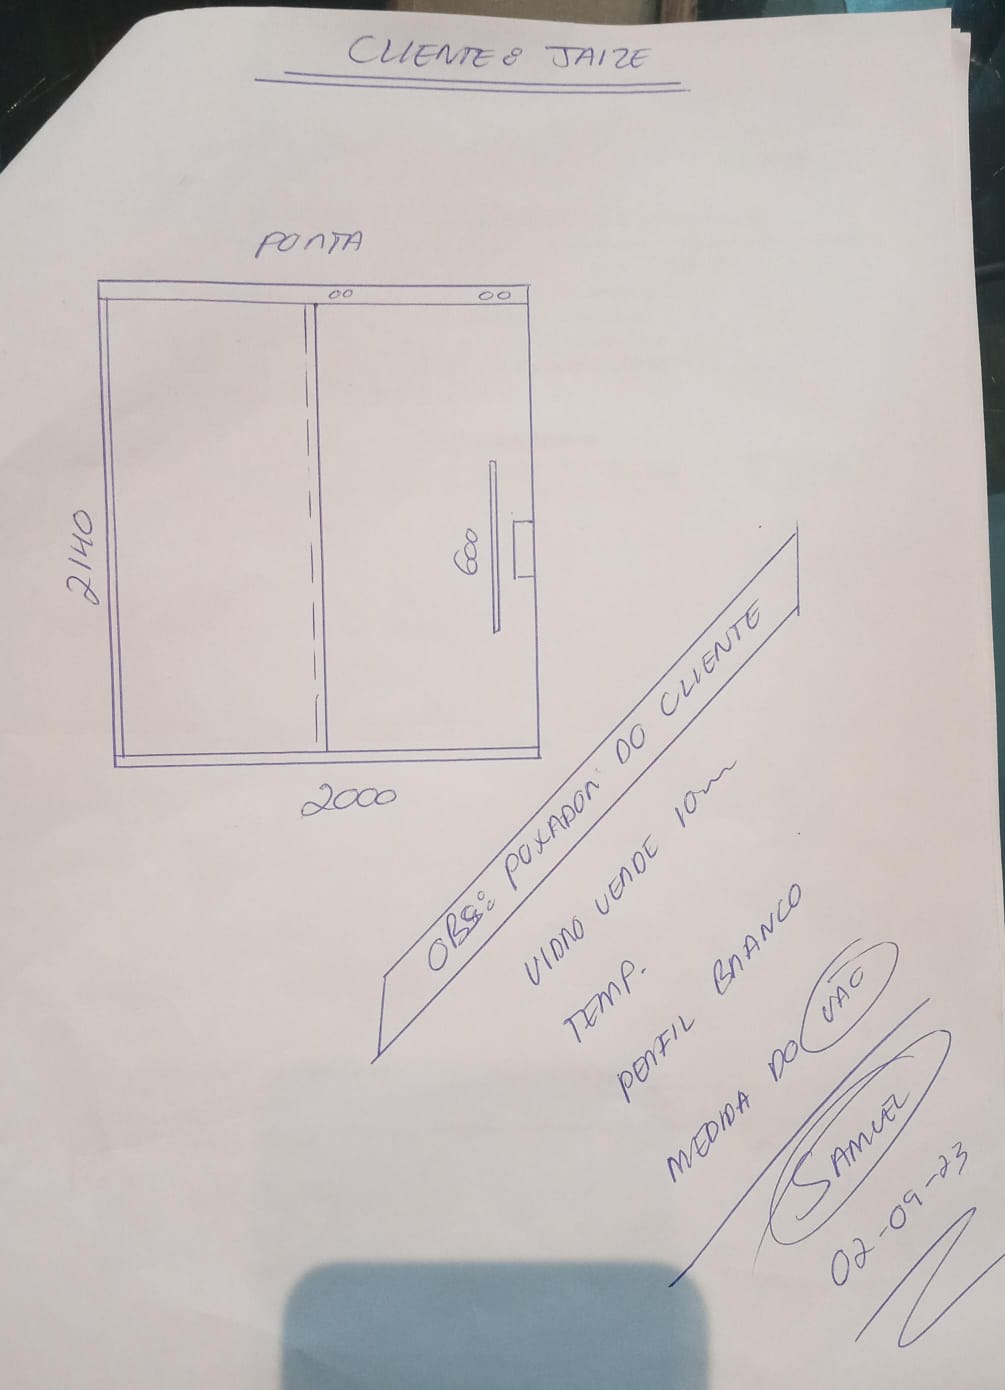 CLIENTE: JAIZE
PORTA
2140
600
2000
OBS: PUXADOR DO CLIENTE
VIDRO VERDE 10m
TEMP.
PERFIL BRANCO
MEDIDA DO VÃO
SAMUEL
02-09-23